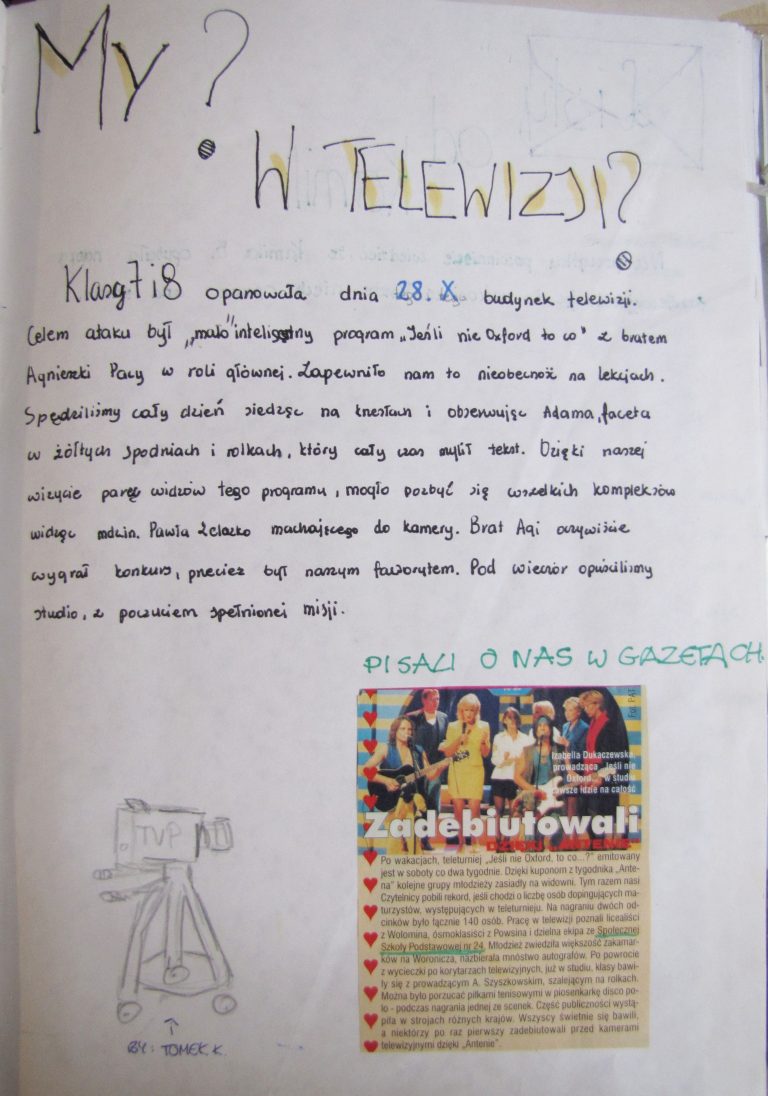 MY?
W TELEWIZJI?
Klasa 7 i 8 opanowała dnia 28.X budynek telewizji.
Celem ataku był „mało" inteligentny program „Jeśli nie Oxford to co" z bratem
Agnieszki Pacy w roli głównej. Zapewniło nam to nieobecność na lekcjach.
Spędziliśmy cały dzień siedząc na krzesłach i obserwując Adama, faceta
w żółtych spodniach i rolkach, który cały czas mylił tekst. Dzięki naszej
wizycie parę widzów tego programu, mogło pozbyć się wszelkich kompleksów
widząc mdzin. Pawła Żelazko machającego do kamery. Brat Agi oczywiście
wygrał konkurs, przecież był naszym faworytem. Pod wieczór opuściliśmy
studio, z poczuciem spełnionej misji.
PISALI O NAS W GAZETACH.
Fot. PAT
Izabella Dukaczewska,
prowadząca „Jeśli nie
Oxford..." w studiu
zawsze idzie na całość
Zadebiutowali
DZIĘKI „ANTENIE"
Po wakacjach, teleturniej „Jeśli nie Oxford, to co...?" emitowany
jest w soboty co dwa tygodnie. Dzięki kuponom z tygodnika „Ante-
na" kolejne grupy młodzieży zasiadły na widowni. Tym razem nasi
Czytelnicy pobili rekord, jeśli chodzi o liczbę osób dopingujących ma-
turzystów, występujących w teleturnieju. Na nagraniu dwóch od-
cinków było łącznie 140 osób. Pracę w telewizji poznali licealiści
z Wołomina, ósmoklasiści z Powsina i dzielna ekipa ze Społecznej
Szkoły Podstawowej nr 24. Młodzież zwiedziła większość zakamar-
ków na Woronicza, nazbierała mnóstwo autografów. Po powrocie
z wycieczki po korytarzach telewizyjnych, już w studiu, klasy bawi-
ły się z prowadzącym A. Szyszkowskim, szalejącym na rolkach.
Można było porzucać piłkami tenisowymi w piosenkarkę disco po-
lo - podczas nagrania jednej ze scenek. Część publiczności wystą-
piła w strojach różnych krajów. Wszyscy świetnie się bawili,
a niektórzy po raz pierwszy zadebiutowali przed kamerami
telewizyjnymi dzięki „Antenie".
TVP
BY: TOMEK K.